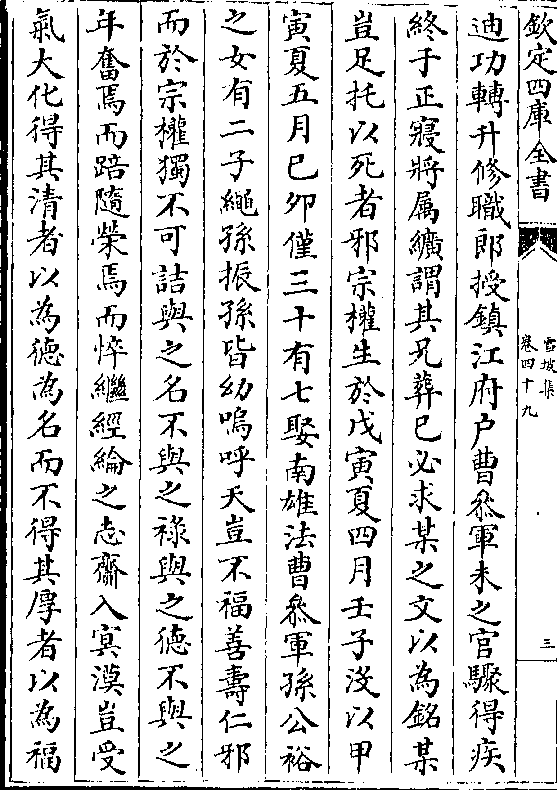 欽定四庫全書
雪坡集
卷四十九
三
迪功轉升修職郎授鎮江府户曹叅軍未之官驟得疾
終于正寢將属纊謂其兄葬已必求某之文以為銘某
豈足托以死者邪宗權生於戊寅夏四月壬子沒以甲
寅夏五月已夘僅三十有七娶南雄法曹叅軍孫公裕
之女有二子繩孫振孫皆幼嗚呼天豈不福善壽仁邪
而於宗權獨不可詰與之名不與之禄與之徳不與之
年奮焉而踣隨榮焉而悴繼經綸之志齎入㝠漠豈受
氣大化得其清者以為徳為名而不得其厚者以為福